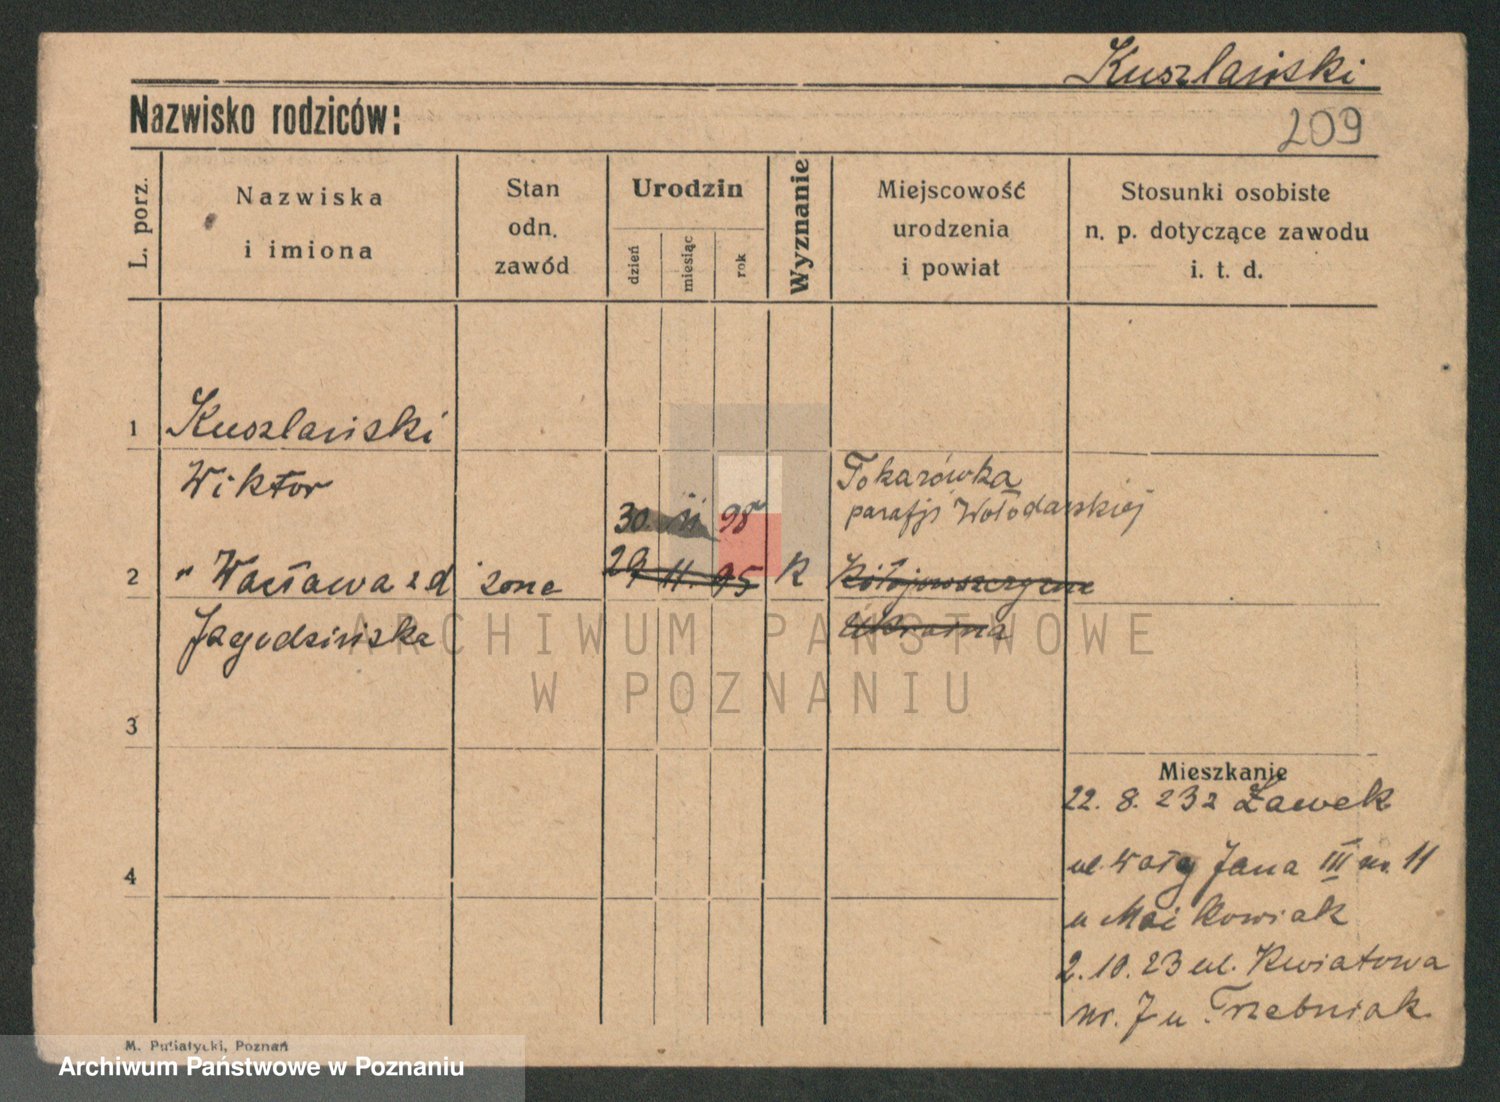 Kuszlański
Nazwisko rodziców:
209
L. porz.
Nazwiska
i imiona
Stan
odn.
zawód
Urodzin
dzień
miesiąc
rok
Wyznanie
Miejscowość
urodzenia
i powiat
Stosunki osobiste
n. p. dotyczące zawodu
i. t. d.
1 Kuszlański
Wiktor
Tokarówka
parafji Wołodarskiej
30. 11 98
2 " Wacława z d żona 29 11. 95 K
Jagodzińska Ukraina
ARCHIWUM PAŃSTWOWE
W POZNANIU
3
Mieszkanie
22. 8. 23 z Ławek
4
ul. Wały Jana III nr. 11
u Maćkowiak
2. 10. 23 ul. Kwiatowa
nr. 7 u Trzebniak
M. Putiatycki, Poznań
Archiwum Państwowe w Poznaniu